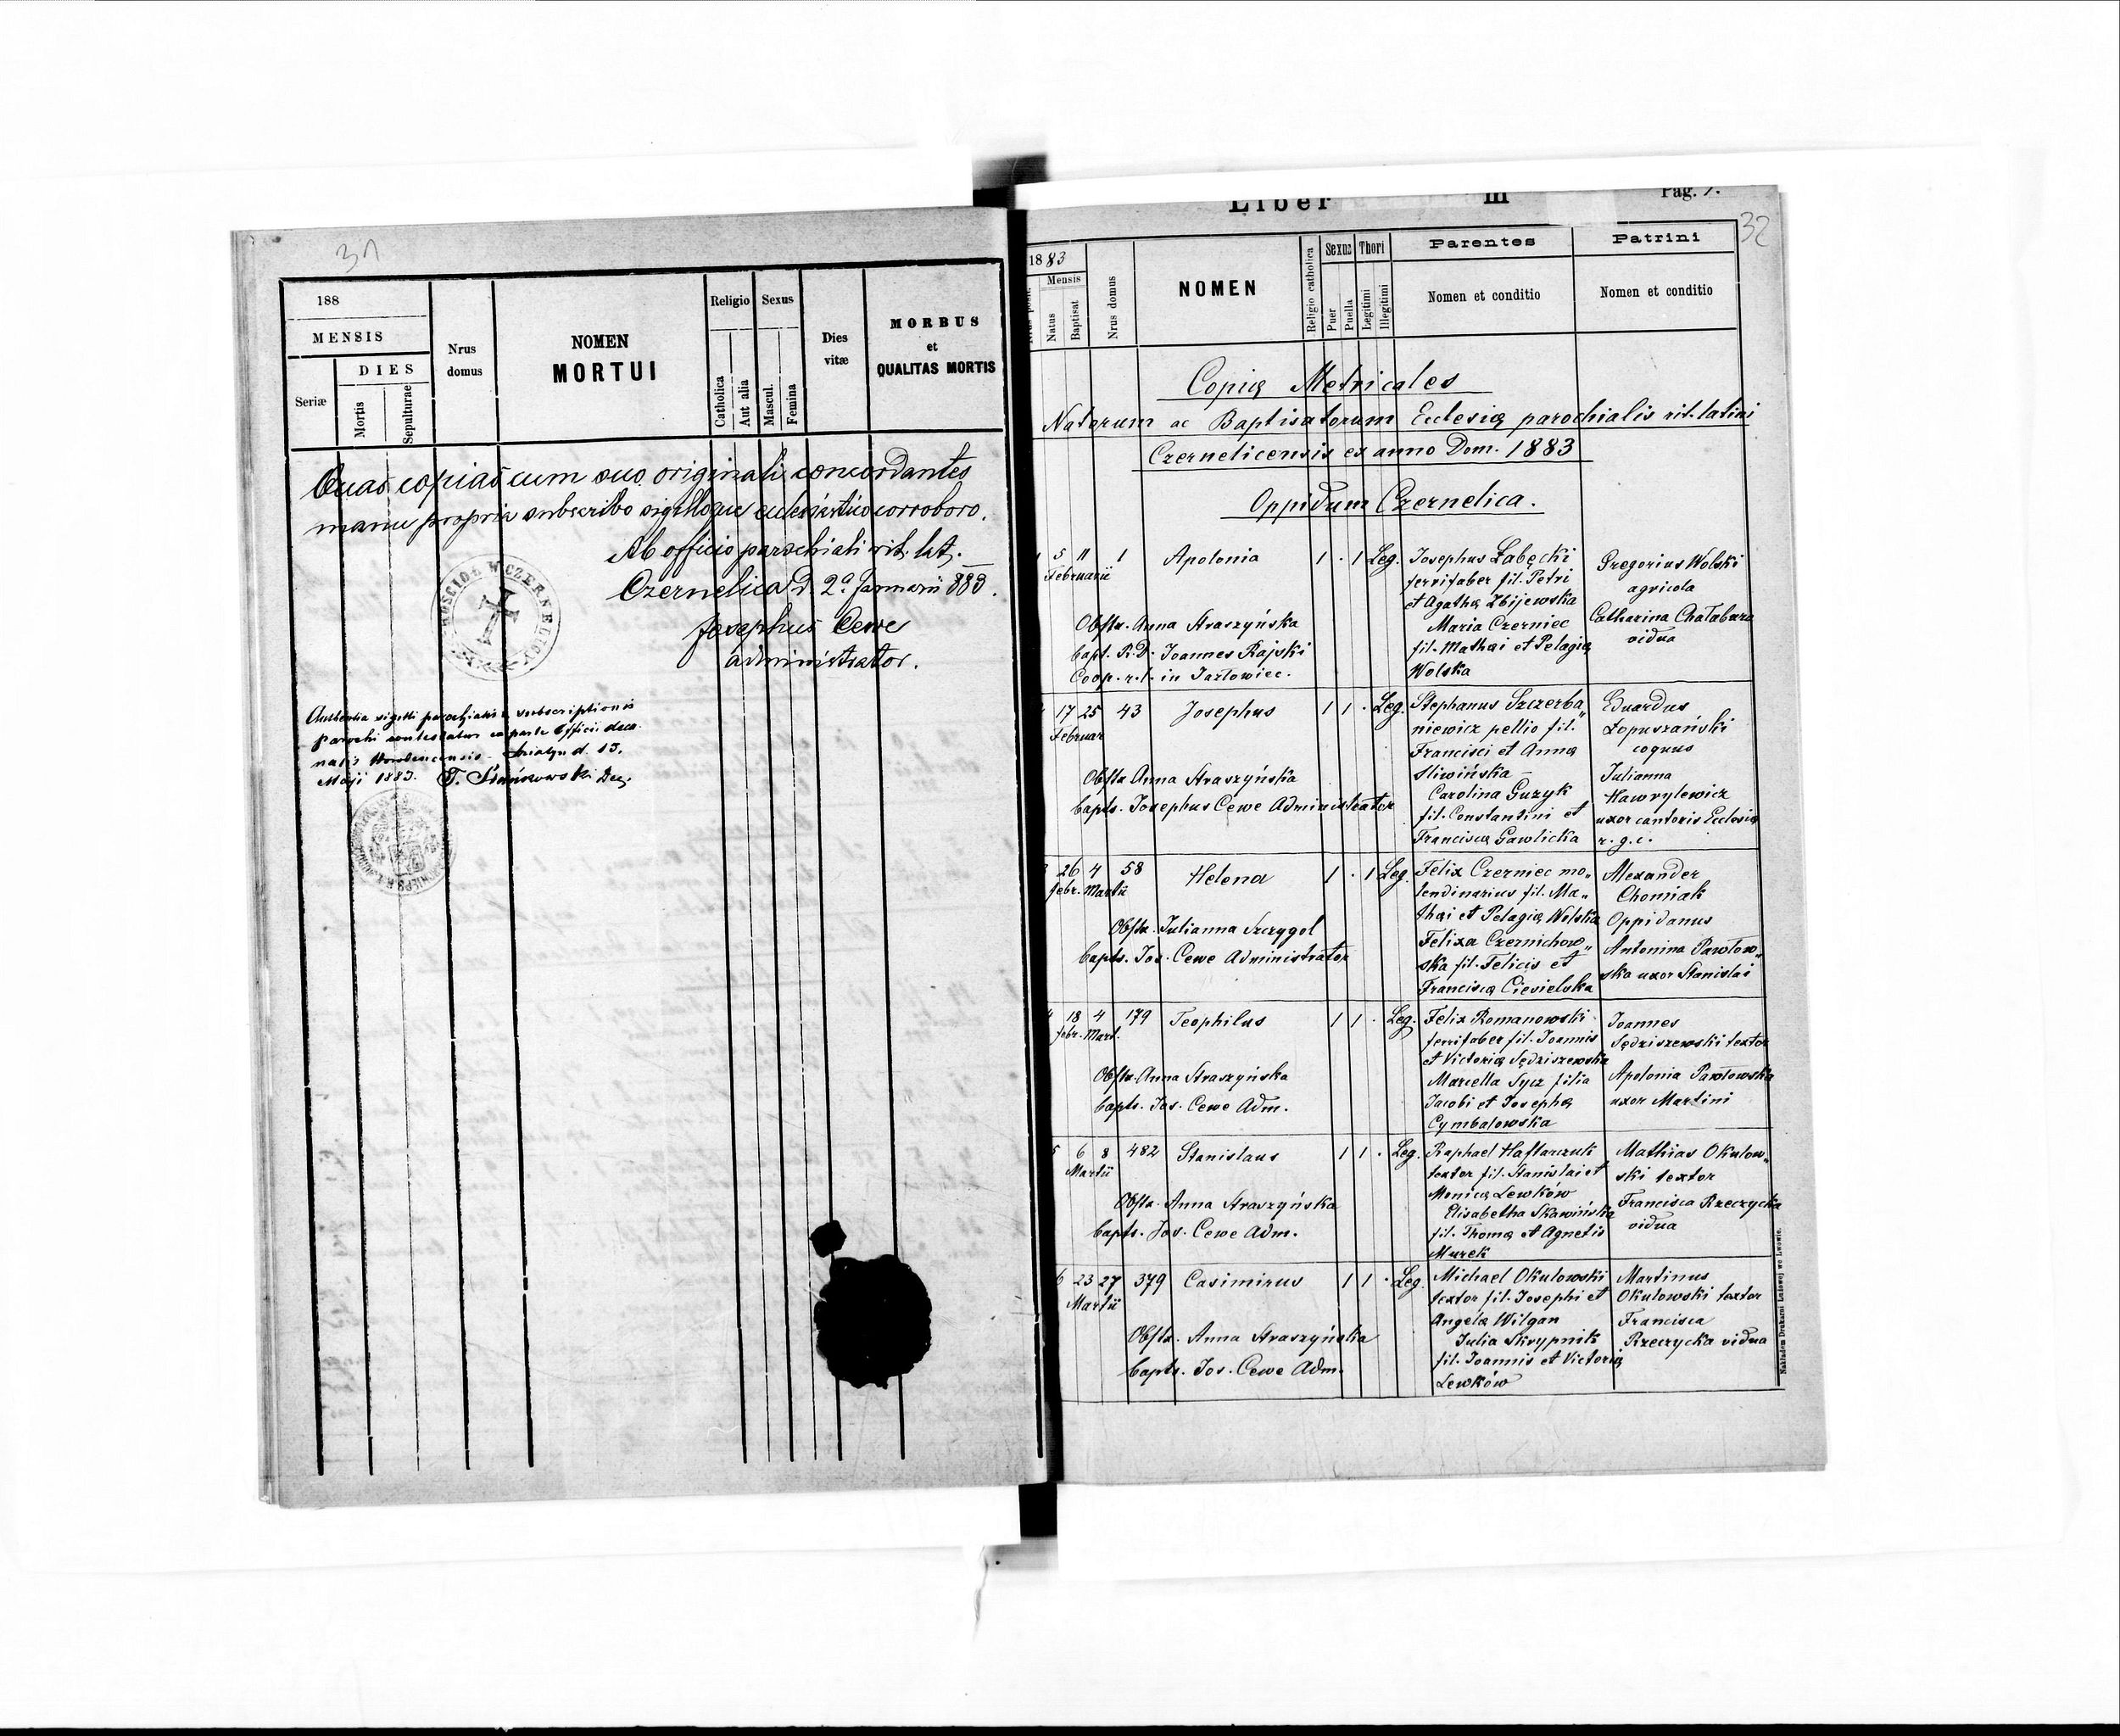 31
188
MENSIS
DIES
Seriæ
Mortis
Sepulturae
Nrus domus
NOMEN
MORTUI
Religio
Catholica
Aut alia
Sexus
Mascul.
Femina
Dies vitæ
MORBUS
et
QUALITAS MORTIS
Quas copias cum suo originali concordantes
manu propria subscribo sigilloque ecclesiastico corroboro.
Ab officio parochiali rit. lat.
Czernelica d. 2ª Januarii 883.
Josephus Cewe
administrator.
KOŚCIOŁ W CZERNELICY
Authentia sigilli parochialis & subscriptionis
parochi contestatur ex parte Officii deca
natis
Maji 1883.
Liber III Pag.
32
1883
Mensis
Natus
Baptisat
Nrus domus
NOMEN
Religio catholica
Sexus
Puer
Puella
Thori
Legitimi
Illegitimi
Parentes
Nomen et conditio
Patrini
Nomen et conditio
Copiæ Metricales
Natorum ac Baptisatorum Ecclesiæ parochialis rit. latini
Czernelicensis ex anno Dom. 1883
Oppidum Czernelica.
5 11 1 Apolonia 1 . 1 Leg.
Februarii
Obstx. Anna Straszyńska
bapt. R.D. Joannes Rajski
Coop. r.l. in Jazłowiec.
Josephus Łabęcki
ferrifaber fil. Petri
et Agathæ Zbijewska
Maria Czerniec
fil. Mathæi et Pelagiæ
Wolska
Gregorius Wolski
agricola
Catharina Chałabura
vidua
17 25 43 Josephus 1 1 . Leg.
Februar
Obstx Anna Straszyńska
bapts. Josephus Cewe Administrator
Stephanus Szczerba„
niewicz pellio fil.
Francisci et Annæ
Sliwińska –
Carolina Guzyk
fil. Constantini et
Franciscæ Gawlicka
Eduardus
Łopuszański
coquus
Julianna
Hawrylewicz
uxor cantoris Ecclesiæ
r. g. c.
3 26 4 58 Helena 1 . 1 Leg.
febr. Martii
Obstx. Julianna Szczygol
bapts. Jos. Cewe Administrator
Felix Czerniec mo„
lendinarius fil. Ma„
thæi et Pelagiæ Wolska
Felixa Czernichow„
ska fil. Felicis et
Franciscæ Ciesielska
Alexander
Chomiak
Oppidanus
Antonina Pawłow„
ska uxor Stanislai
4 18 4 179 Teophilus 1 1 . Leg.
febr. Mart.
Obstx. Anna Straszyńska
bapts. Jos. Cewe Adm.
Felix Romanowski
ferrifaber fil. Joannis
et Victoriæ Sędziszewska
Marcella Sycz filia
Jacobi et Josephæ
Cymbalowska
Joannes
Sędziszewski textor
Apolonia Pawłowska
uxor Martini
5 6 8 482 Stanislaus 1 1 . Leg.
Martii
Obstx. Anna Straszyńska
bapts. Jos. Cewe Adm.
Raphael Haftarczuk
textor fil. Stanislai et
Monicæ Lewków
Elisabetha Skawińska
fil. Thomæ et Agnetis
Murek
Mathias Okulow„
ski textor
Francisca Rzeczycka
vidua
6 23 27 379 Casimirus 1 1 . Leg.
Martii
Obstx. Anna Straszyńska
bapts. Jos. Cewe Adm.
Michael Okulowski
textor fil. Josephi et
Angelæ Wilgan
Julia Skrypnik
fil. Joannis et Victoriæ
Lewków
Martinus
Okulowski textor
Francisca
Rzeczycka vidua
Nakładem Drukarni Ludowej we Lwowie.